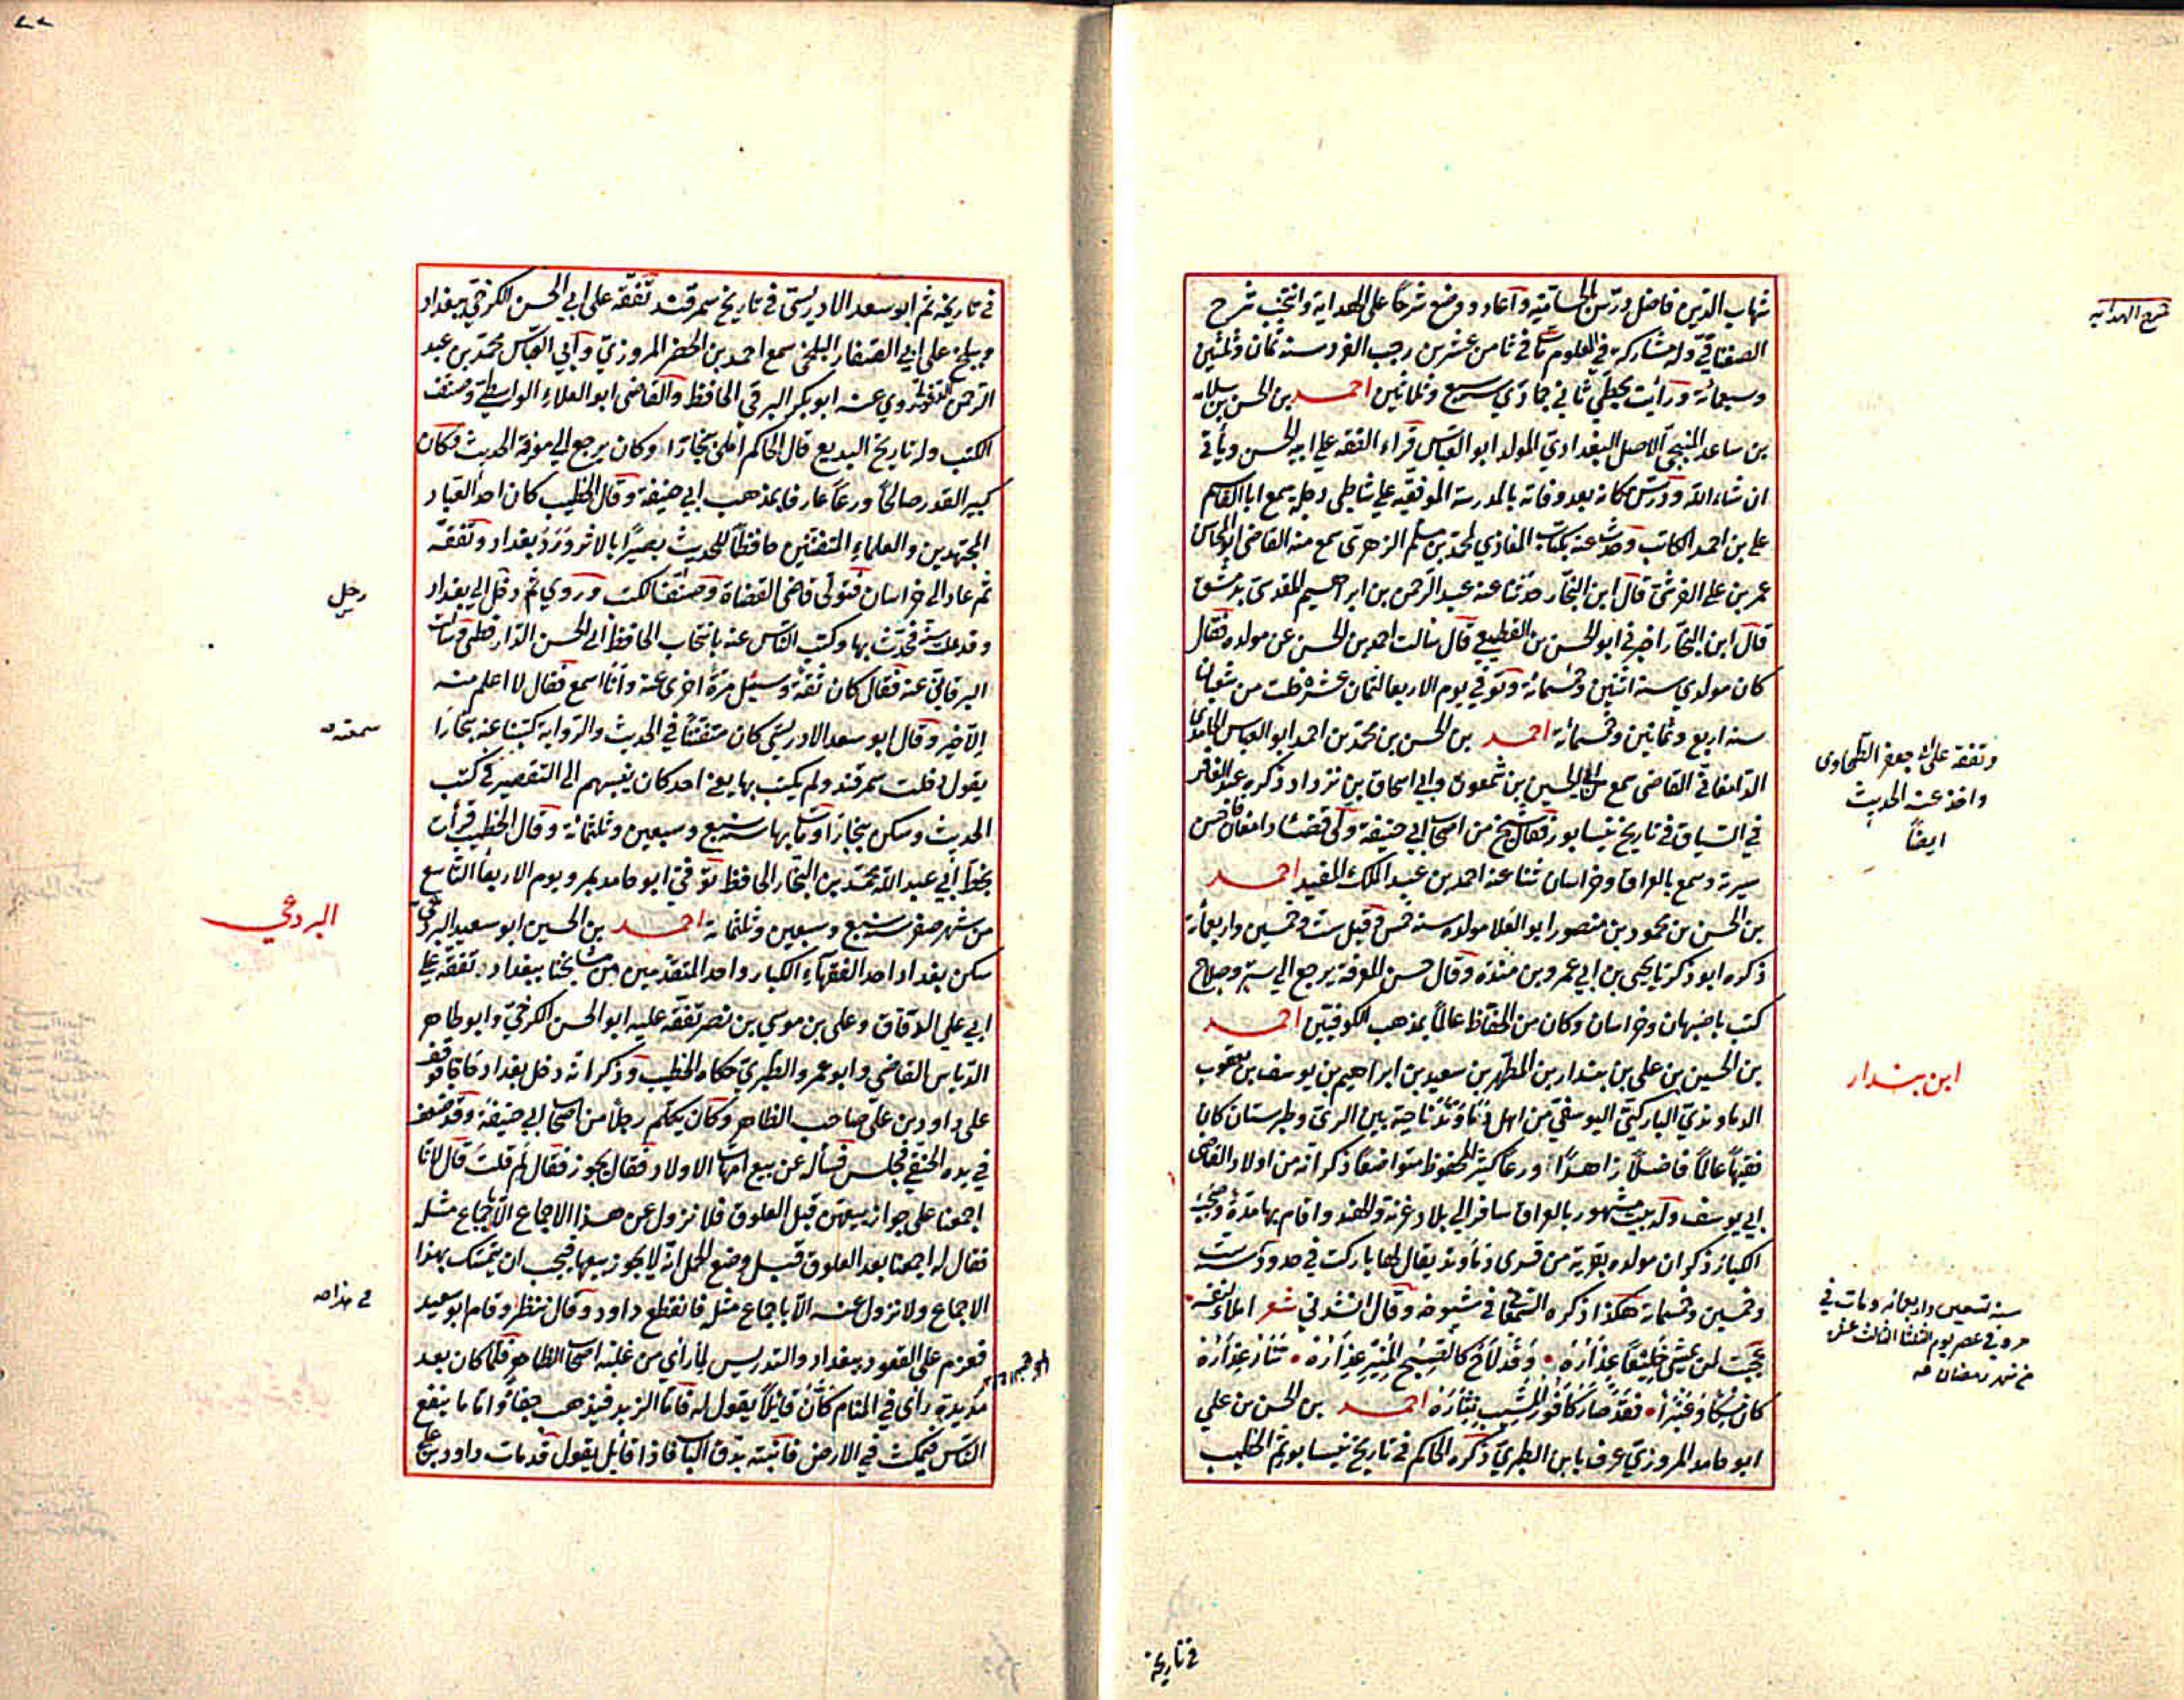 شهاب الدين فاضل درّس بالحسامية وأعاد ووضع شرحًا على الهداية وانتخب شرح
الصغناقي وله مشاركة في العلوم مات في ثامن عشرين رجب الفرد سنة ثمان وثلثين
وسبعمائة ورأيت بخطي ثاني جمادي سبع وثلاثين احمد بن الحسن بن سلامة
بن ساعد المنبجي الاصل البغدادي المولد ابو العباس قراء الفقه على ابيه الحسن ويأتي
ان شاء الله ودرّس مكانه بعد وفاته بالمدرسة الموفقية على شاطئ دجلة سمع ابا القاسم
علي بن احمد الكاتب وحدث عنه بكتاب المغازي لمحمد بن مسلم الزهري سمع منه القاضي ابو المحاسن
عمر بن علي القرشي قال ابن النجار حدثنا عنه عبد الرحمن بن ابراهيم المقدسي بدمشق
قال ابن النجار اخبرني ابو الحسن بن القطيعي قال سالت احمد بن الحسن عن مولده فقال
كان مولدي سنة اثنين وخمسمائة وتوفي يوم الاربعا لثمان عشرة خلت من شعبان
سنة اربع وثمانين وخمسمائة احمد بن الحسن بن محمد بن احمد ابو العباس
الدامغاني القاضي سمع ابا الحسين بن شمعون وابي اسحاق بن يزداد ذكره عبد الغافر
في السياق في تاريخ نيسابور فقال شيخ من اصحاب ابي حنيفة ولي قضاء دامغان حسن
سيرته وسمع بالعراق وخراسان ثنا عنه احمد بن عبد الملك المفيد احمد
بن الحسن بن محمود بن منصور ابو العلا مولده سنة خمس وقيل ست وخمسين واربعمأئة
ذكره ابو زكريا يحيى بن ابي عمرو بن مندة وقال حسن المعرفة يرجع الي ستر وصلاح
كتب باصبهان وخراسان وكان من الحفاظ عالماً بمذهب الكوفيين احمد
بن الحسين بن علي بن بندار بن المطهر بن سعيد بن ابراهيم بن يوسف بن يعقوب
الدماوندي الباركثي اليوسفي من اهل دُنْباوَنْد ناحية بين الري وطبرستان كان
فقيهاً عالمًا فاضلاً زاهداً ورعاً كثير المحفوظ متواضعاً ذكر انه من اولاد القاضي
ابي يوسف وله بيت مشهور بالعراق سافر الي بلاد غزنة والهند واقام بها مدة وصحب
الكبار ذكر ان مولده بقرية من قرى دنباوند يقال لها باركث في حدود سنة ست
وخمسين وخمسمائة هكذا ذكره السمعاني في شيوخه وقال انشدني شعر املاء لنفسه
عَجِبْتُ لمن يمشي خَلِيْعًا عِذَارُهُ • وَقَدْ لاحَ كالصبح المُنِيْرِ عِذَارُهُ •
كان مِسْكًا وَعَنْبَراً • فقد صَارَ كَافُورُ المَشِيْبِ نِثَارُهُ احمد بن الحسن بن علي
ابو حامد المروزي عرف بابن الطبري ذكره الحاكم في تاريخ نيسابور ثم الخطيب
شرح الهداية
وتفقه على جعفر الطحاوى
واخذ عنه الحديث
ايضاً
ابن بندار
سنة تسعين واربعمائه ومات في
مرو في عصر يوم الثلثا الثالث عشر
من شهر رمضان صح
في تاريخه
في تاريخه ثم ابو سعد الادريسي في تاريخ سمرقند تفقه على ابي الحسن الكرخي ببغداد
وببلخ على ابي القاسم الصفار البلخي سمع احمد بن الخضر المروزي وابي العباس محمد بن عبد
الرحمن الدغولي روي عنه ابو بكر البرقي الحافظ والقاضي ابو العلاء الواسطي وصنف
الكتب وله تاريخ البديع قال الحاكم أملى ببخارا وكان يرجع الي معرفة الحديث وكان
كبير القدر صالحاً ورعاً عارفا بمذهب ابي حنيفة وقال الخطيب كان احد العباد
المجتهدين والعلماء المتفننين حافظاً للحديث بصيرًا بالاثر ورَدَ بغداد وتفقه
ثم عاد الى خراسان فتولى قاضي القضاة وصنف الكتب وروي ثم دخل الي بغداد
وقد علت سنه فحدث بها وكتب الناس عنه بانتخاب الحافظ ابي الحسن الدارقطني وسألت
البرقاني عنه فقال كان ثقة وسئل مرة اخرى عنه وانا اسمع فقال لا اعلم منه
الا خير وقال ابو سعد الادريسي كان متفننًا في الحديث والرواية كتبنا عنه ببخارا
يقول دخلت سمرقند ولم يكتب بها يعني احد كان ينسبهم الى التقصير في كتب
الحديث وسكن ببخارا ومات بها سنة سبع وسبعين وثلثمائة وقال الخطيب قرأت
بخط ابي عبد الله محمد بن النجار الحافظ توفي ابو حامد بمرو يوم الاربعا التاسع
من شهر صفر سنة سبع وسبعين وثلثمائة احمد بن الحسين ابو سعيد البردعي
سكن بغداد احد الفقهاء الكبار واحد المتقدمين من مشايخنا ببغداد تفقه على
ابي علي الدقاق وعلى بن موسي بن نصر تفقه عليه ابو الحسن الكرخي وابو طاهر
الدباس القاضي وابو عمرو الطبري حكاه الخطيب وذكر انه دخل بغداد حاجا فوقف
على داود بن علي صاحب الظاهر وكان يكلم رجلاً من اصحاب ابي حنيفة وقد ضعف
في يده الحنفي فجلس فسأله عن بيع امهات الاولاد فقال يجوز فقال لم قلت قال لانا
اجمعنا على جواز بيعهن قبل العلوق فلا نزول عن هذا الاجماع الا باجماع مثله
فقال له اجمعنا بعد العلوق قبل وضع الحمل انه لا يجوز بيعها فيجب ان يتمسك بهذا
الاجماع ولا نزول عنه الا باجماع مثله فانقطع داود وقال ننظر وقام ابو سعيد
فعزم على القعود ببغداد والتدريس لما رأي من غلبة اصحاب الظاهر فلما كان بعد
مديدة رأى في المنام كأَنَّ قائلاً يقول له فامّا الزبد فيذهب جفاءً وامّا ما ينفع
الناس فيمكث في الارض فانتبه بدق الباب فاذا قائل يقول قد مات داود بن علي
سمعته صح
البردعي
في هذا صح